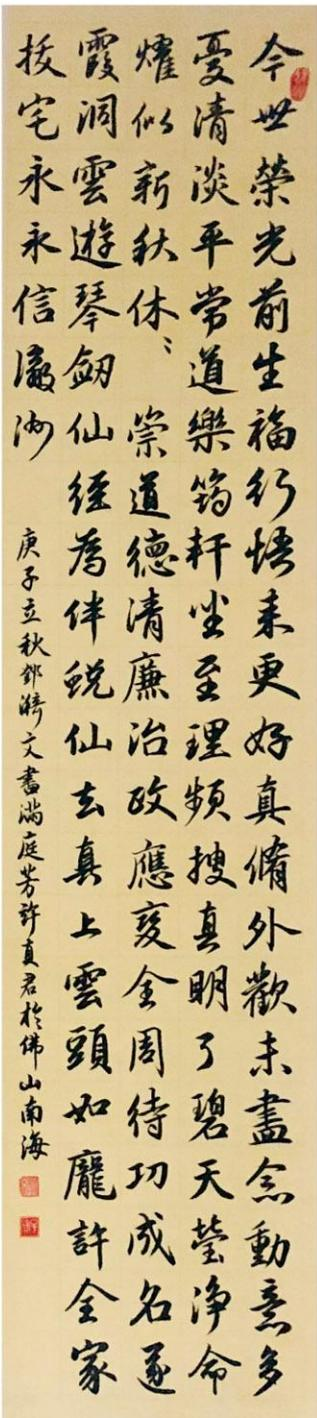 今世榮光前生福行悟来更好真脩外歡未盡念動意多
憂清淡平常道樂筠軒坐至理頻搜真明了碧天瑩淨命
燿似新秋休〻 崇道德清廉治政應变全周待功成名遂
霞洞雲遊琴劔仙經為伴蛻仙去真上雲頭如龐許全家
拔宅永永信瀛洲
庚子立秋鄧漪文書滿庭芳許真君於佛山南海